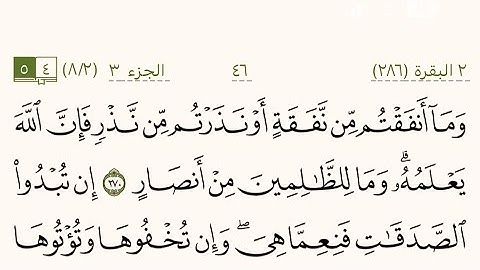 ٢ البقرة (٢٨٦) ٤٦ الجزء ٣ (٨/٢) ٤ ٥
وَمَآ أَنفَقْتُم مِّن نَّفَقَةٍ أَوْ نَذَرْتُم مِّن نَّذْرٍ فَإِنَّ ٱللَّهَ
يَعْلَمُهُۥۗ وَمَا لِلظَّٰلِمِينَ مِنْ أَنصَارٍ ٢٧٠ إِن تُبْدُوا۟
ٱلصَّدَقَٰتِ فَنِعِمَّا هِىَۖ وَإِن تُخْفُوهَا وَتُؤْتُوهَا